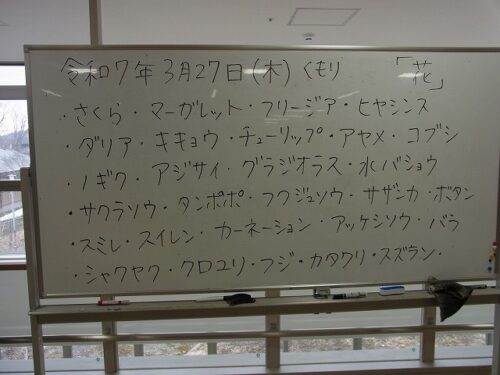 令和7年3月27日(木)くもり 「花」
・さくら・マーガレット・フリージア・ヒヤシンス
・ダリア・キキョウ・チューリップ・アヤメ・コブシ
・ノギク・アジサイ・グラジオラス・水バショウ
・サクラソウ・タンポポ・フクジュソウ・サザンカ・ボタン
・スミレ・スイレン・カーネーション・アッケシソウ・バラ
・シャクヤク・クロユリ・フジ・カタクリ・スズラン・